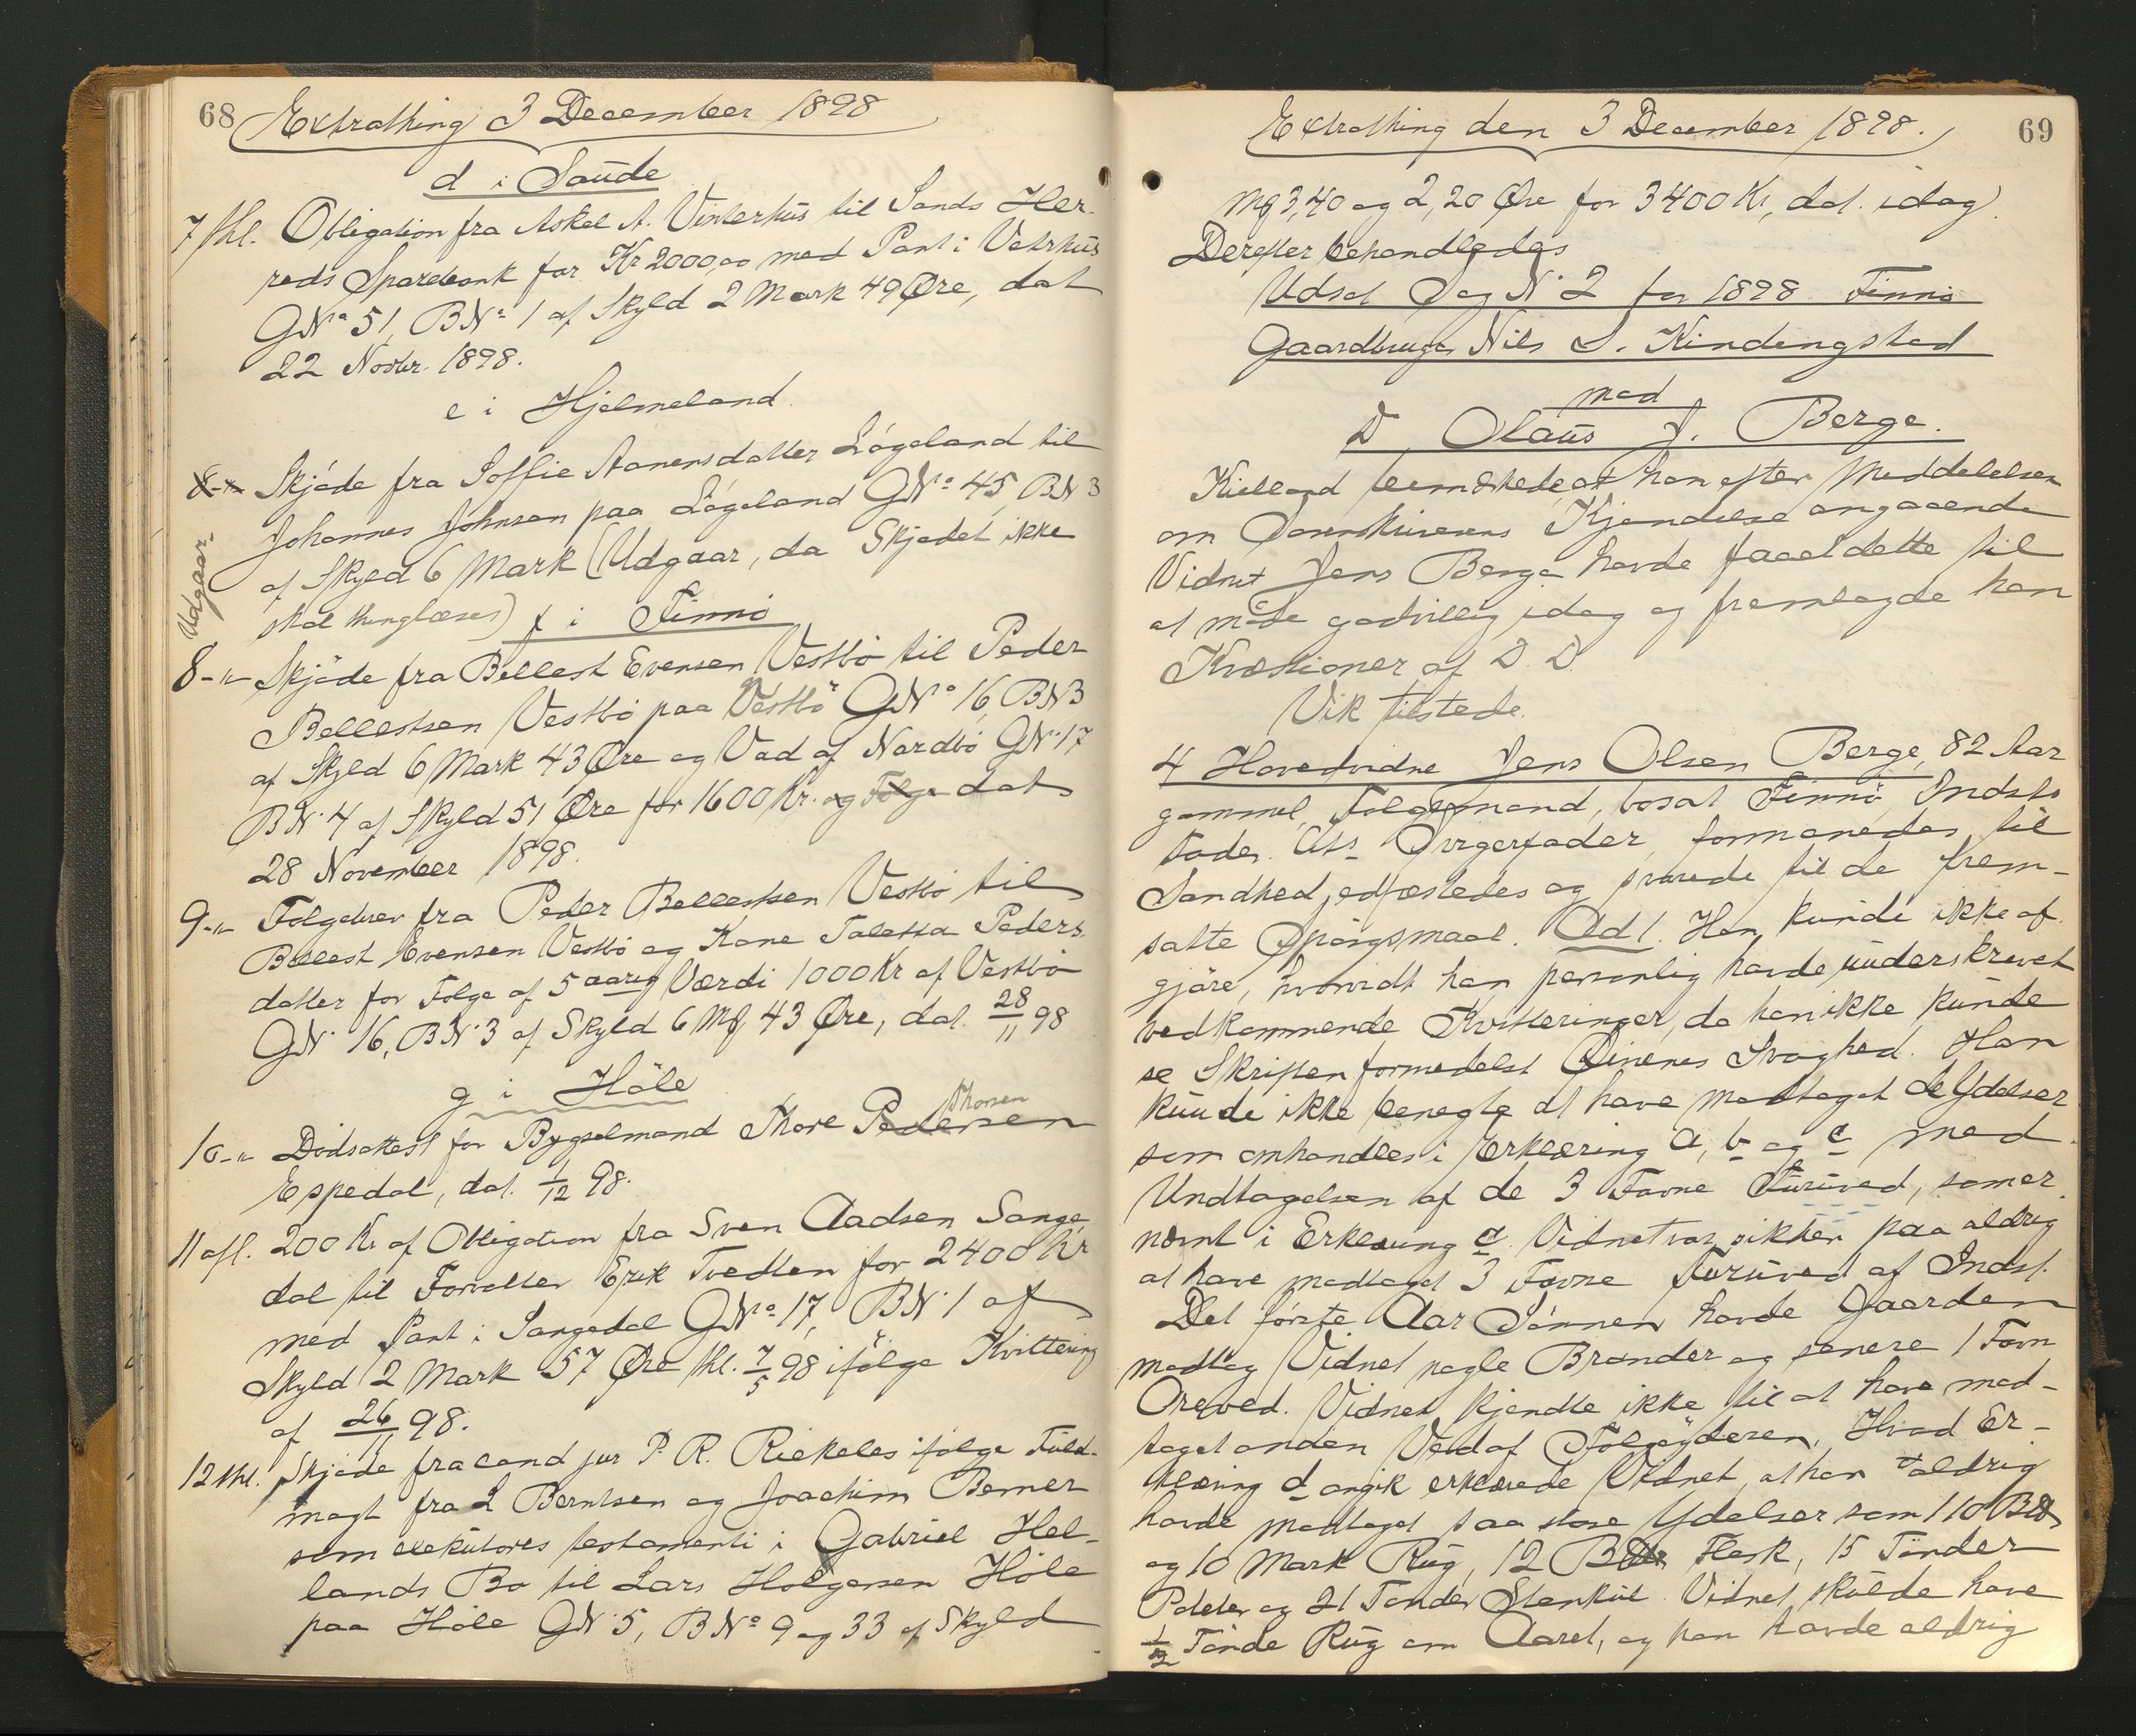 68 Extrathing 3 December 1898
d i Saude
7 thl. Obligation fra Askel A. Vinterhus til Sands Her-
reds Sparebank for Kr 2000,00 med Pant i Vatrhus
GNo 51, BNo 1 af Skyld 2 Mark 49 Øre, dat
22 Novbr. 1898.
e i Hjelmeland
8-"- Skjøde fra Soffie Aanensdatter Løgeland til
Johannes Johnsen paa Løgeland GNo 45, BN 3
af Skyld 6 Mark (Udgaar, da Skjødet ikke
skal thinglæses)
Udgaar
f i Finnø
8-"- Skjøde fra Bellest Evensen Vestbø til Peder
Bellestsen Vestbø paa Vestbø GNo 16, BN 3
af Skyld 6 Mark 43 Øre og Vad af Nordbø GN. 17
BN. 4 af Skyld 51 Øre for 1600 Kr. og Følge dat
28 November 1898.
9-"- Følgebrev fra Peder Bellestsen Vestbø til
Bellest Evensen Vestbø og Kone Taletta Peders
datter for Følge af 5 aarig Værdi 1000 Kr af Vestbø
GN. 16, BN. 3 af Skyld 6 Mk 43 Øre, dat. 28/11 98
g i Høle
Thorsen
10-"- Dødsattest for Bygselmand Thore Pedersen
Espedal, dat. 1/12 98.
11 afl. 200 Kr af Obligation fra Sven Aadsen Sange
dal til Forvalter Erik Tvedten for 2400 Kr
med Pant i Sangedal GNo 17, BN. 1 af
Skyld 2 Mark 57 Øre thl. 7/5 98 ifølge Kvittering
af 26/11 98.
12 thl. Skjøde fra cand jur P. R. Riekeles ifølge Fuld-
magt fra L Berntsen og Joachim Berner
som exekutores testamenti i Gabriel Hel-
lands Bo til Lars Holgersen Høle
paa Høle GN. 5, BNo 9 og 33 af Skyld
Extrathing den 3 December 1898. 69
Mk 3,40 og 2,20 Øre for 3400 Kr, dat. idag.
Derefter behandledes
Udsat Sag N. 2 for 1898 Finnø
Gaardbruger Nils S. Kindingstad
mod
D Olaus J. Berge.
Kielland bemærkede at han efter Meddelelsen
om Sorenskriverens Kjendelse angaaende
Vidnet Jens Berge havde faaet dette til
at møde godvillig idag og fremlagde han
Kvæstioner af D. D.
Vik tilstede.
4 Hovedvidne Jens Olsen Berge, 82 Aar
gammel, Følgemand, bosat Finnø, Indsts
Fader. Ctts Svigerfader, formanedes til
Sandhed, edfæstedes og svarede til de frem-
satte Spørgsmaal. Ad 1. Han kunde ikke af
gjøre, hvorvidt han personlig havde underskrevet
vedkommende Kvitteringer, da han ikke kunde
se Skriften formedelst Øinenes Svaghed. Han
kunde ikke benegte at have modtaget de Ydelser
som omhandles i Erklæring a, b og c med
Undtagelsen af de 3 Favne Furuved, som er
nævnt i Erklæring c. Vidnet var sikker paa aldrig
at have modtaget 3 Favne Furuved af Indst.
Det første Aar Sønnen havde Gaarden
modtog Vidnet nogle Brander og senere 1 Favn
Oreved. Vidnet kjendte ikke til at have mod-
taget anden Ved af Følgeyderen. Hvad Er-
klæring d angik erklærede Vidnet, at han aldrig
havde modtaget saa store Ydelser som 110 B
og 10 Mark Rug, 12 B Flesk, 15 Tønder
Poteter og 21 Tønder Stenkul. Vidnet skulde have
1/2 Tønde Rug om Aaret, og han havde aldrig